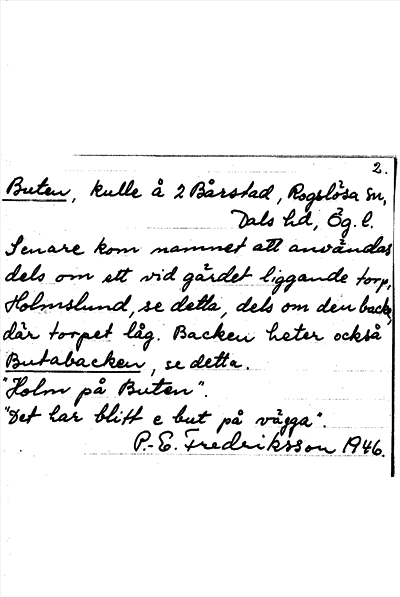 2.
Buten, kulle å 2 Bårstad, Rogslösa sn,
Dals hd, Ög. l.
Senare kom namnet att användas
dels om ett vid gärdet liggande torp,
Holmslund, se detta, dels om den backe,
där torpet låg. Backen heter också
Butabacken, se detta.
"Holm på Buten".
"Det har blitt e but på vägga".
P.-E. Fredriksson 1946.